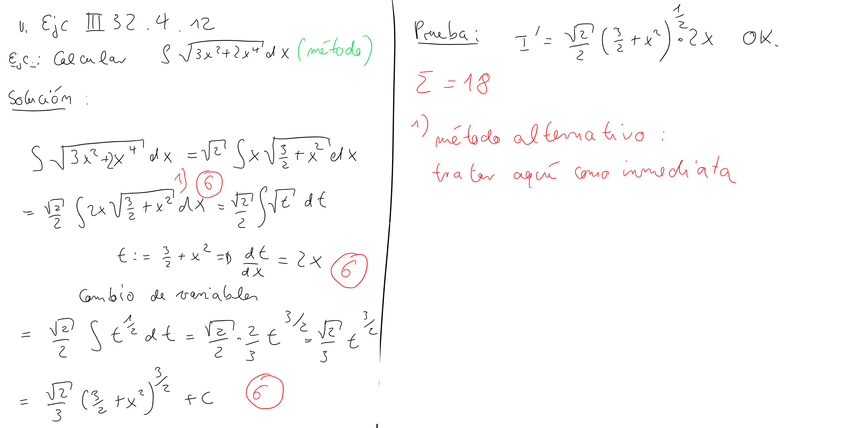 v. Ejc III 32.4.12
Ejc.: Calcular ∫ √(3x²+2x⁴) dx (método)
Solución:
∫ √(3x²+2x⁴) dx = √2 ∫ x √(3/2 + x²) dx
1) 6
= √2/2 ∫ 2x √(3/2 + x²) dx = √2/2 ∫ √t dt
t := 3/2 + x² ⇒ dt/dx = 2x 6
Cambio de variables
= √2/2 ∫ t^(1/2) dt = √2/2 · 2/3 t^(3/2) = √2/3 t^(3/2)
= √2/3 (3/2 + x²)^(3/2) + C 6
Prueba: I' = √2/2 (3/2 + x²)^(1/2) · 2x OK.
Σ = 18
1) método alternativo:
tratar aquí como inmediata